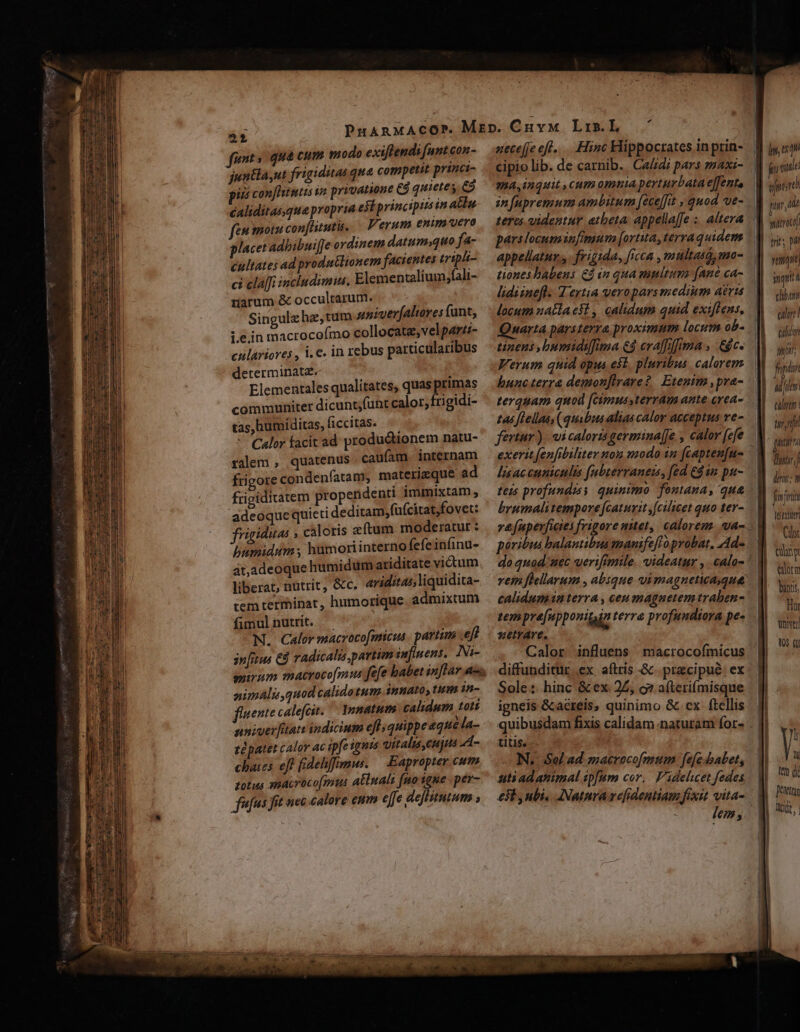 22 PHARMACOP. MED. CHYM LIB. I.
sunt, quæ cum modo existendi sunt con-
juncta, ut frigiditas quæ competit princi-
piis constitutis in privatione & quiete, &
caliditas, quæ propria est principiis in actu
seu motu constitutis. Verum enimvero
placet adhibuisse ordinem datum, quo fa-
cultates ad productionem facientes tripli-
ci classi includimus, Elementalium, sali-
narum & occultarum.
Singulæ hæ, tum universaliores sunt,
i.e. in macrocosmo collocatæ, vel parti-
culariores, i. e. in rebus particularibus
determinatæ.
Elementales qualitates, quas primas
communiter dicunt, sunt calor, frigidi-
tas, humiditas, siccitas.
Calor facit ad productionem natu-
ralem, quatenus causam internam
frigore condensatam, materiæque ad
frigiditatem propendenti immixtam,
adeoque quieti deditam, suscitat, fovet:
frigiditas, caloris æstum moderatur:
humidum, humori interno sese insinu-
at, adeoque humidum ariditate victum
liberat, nutrit, &c, ariditas, liquidita-
tem terminat, humorique admixtum
simul nutrit.
N. Calor macrocosmicus partim est
insitus & radicalis, partim influens. Ni-
mirum macrocosmus sese habet instar a-
nimalis, quod calido tum innato, tum in-
fluente calescit. Innatum calidum toti
universitati indicium est, quippe æque la-
tè patet calor ac ipse ignis vitalis, cujus A-
chates est fidelissimus. Eapropter cum
totus macrocosmus actuali suo igne per-
fusus sit nec calore eum esse destitutum,
necesse est. Hinc Hippocrates in prin-
cipio lib. de carnib. Calidi pars maxi-
ma, inquit, cum omnia perturbata essent,
in supremum ambitum secessit, quod ve-
teres videntur ætheta appellasse: altera
pars locum infimum sortita, terra quidem
appellatur, frigida, sicca, multasq; mo-
tiones habens & in qua multum sane ca-
lidi inest. Tertia vero pars medium aëris
locum nacta est, calidum quid existens,
Quarta pars terræ proximum locum ob-
tinens, humidissima & crassissima, &c.
Verum quid opus est pluribus calorem
hunc terræ demonstrare? Etenim, præ-
terquam quod scimus, terram ante crea-
tas stellas, (quibus alias calor acceptus re-
fertur) vi caloris germinasse, calor sese
exerit sensibiliter non modo in scaptensu-
lis ac cuniculis subterraneis, sed & in pu-
teis profundis; quinimo fontana, quæ
brumali tempore scaturit, scilicet quo ter-
ræ superficies frigore nitet, calorem va-
poribus halantibus manifesto probat. Ad-
do quod nec verisimile videatur, calo-
rem stellarum, absque vi magnetica, quæ
calidum in terra, ceu magnetem trahen-
tem præsupponit, in terræ profundiora pe-
netrare.
Calor influens macrocosmicus
diffunditur ex astris & præcipuè ex
Sole: hinc & ex ♃, ♂ asterismisque
igneis & aëreis, quinimo & ex stellis
quibusdam fixis calidam naturam sor-
titis.
N. Sol ad macrocosmum sese habet,
uti ad animal ipsum cor. Videlicet sedes
est, ubi Natura residentiam fixit vita-
lem,